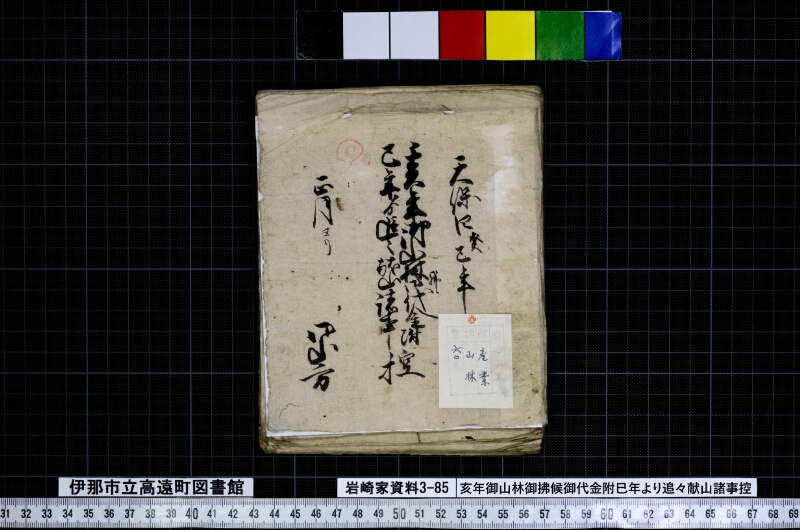 天保四癸巳年
亥年御山林御拂代金附
巳年より追々献山諸事控
正月ヨリ
山方
産業
山林
六〇
伊那市立高遠町図書館
岩崎家資料3-85
亥年御山林御拂候御代金附巳年より追々献山諸事控
31 32 33 34 35 36 37 38 39 40 41 42 43 44 45 46 47 48 49 50 51 52 53 54 55 56 57 58 59 60 61 62 63 64 65 66 67 68 69